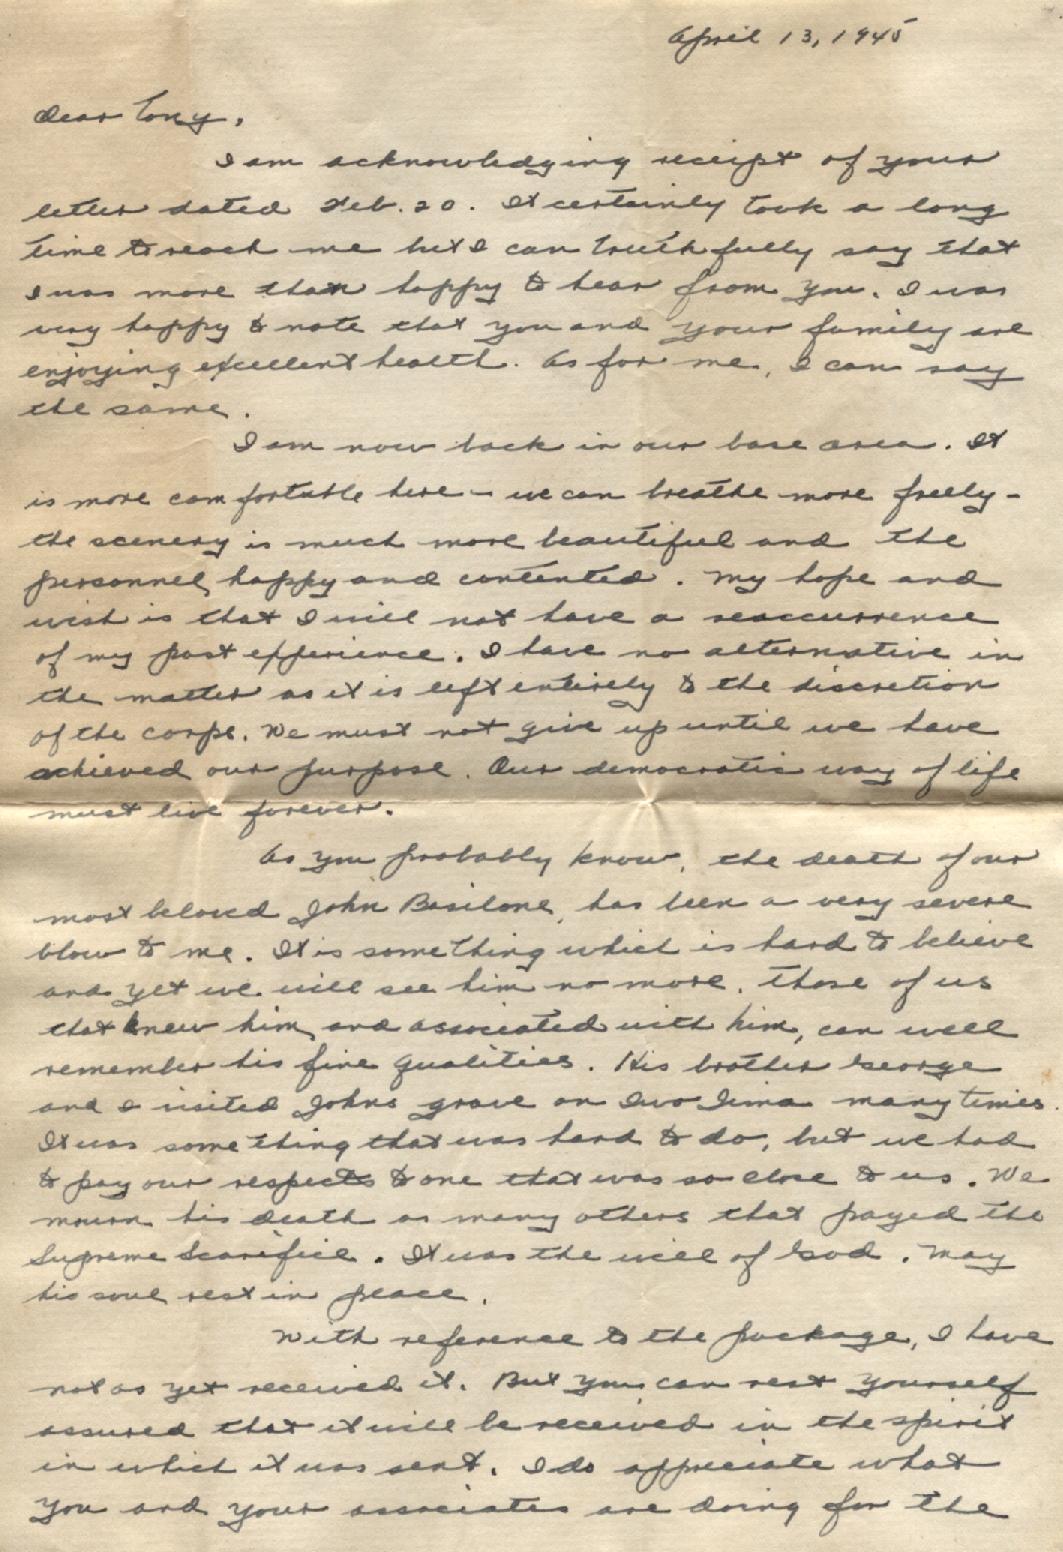 April 13, 1945
Dear Tony,
I am acknowledging receipt of your
letter dated Feb. 20. It certainly took a long
time to reach me but I can truthfully say that
I was more than happy to hear from you. I was
very happy to note that you and your family are
enjoying excellent health. As for me, I can say
the same.
I am now back in our base area. It
is more comfortable here - we can breathe more freely -
the scenery is much more beautiful and the
personnel, happy and contented. My hope and
wish is that I will not have a reaccurrence
of my past experience. I have no alternative in
the matter as it is left entirely to the discretion
of the corps. We must not give up until we have
achieved our purpose. Our democratic way of life
must live forever.
As you probably know, the death of our
most beloved John Basilone, has been a very severe
blow to me. It is something which is hard to believe
and yet we will see him no more. Those of us
that knew him, and associated with him, can well
remember his fine qualities. His brother George
and I visited Johns grave on Iwo Jima many times.
It was something that was hard to do, but we had
to pay our respects to one that was so close to us. We
mourn his death as many others that payed the
Supreme Scarifice. It was the will of God. May
his soul rest in peace.
With reference to the package, I have
not as yet received it. But you can rest yourself
assured that it will be received in the spirit
in which it was sent. I do appreciate what
you and your associates are doing for the